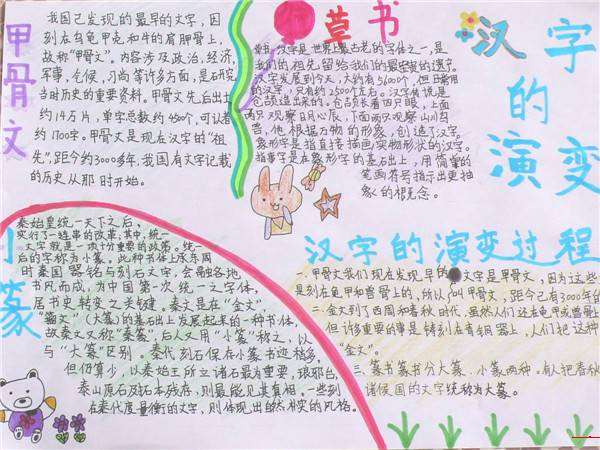 甲骨文
我国已发现的最早的文字，因
刻在乌龟甲壳和牛的肩胛骨上，
故称“甲骨文”。内容涉及政治、经济、
军事、气候、习尚等许多方面，是研究
当时历史的重要资料。甲骨文先后出土
约14万片，单字总数约4500个，可认者
约1700字。甲骨文是现在汉字的“祖
先”，距今约3000多年，我国有文字记载
的历史从那时开始。
草书
草书、汉字是世界上最古老的字体之一，是
我们的祖先留给我们的最宝贵的遗产。
汉字发展到今天，大约有56000个，但日常用
的汉字，只有约2500个左右。汉字传说是
仓颉造出来的。仓颉长着四只眼，上面
两只观察日月心辰，下面两只观察山川鸟
兽，他根据万物的形象，创造了汉字。
象形字是指直接描画实物形状的汉字。
指事字是在象形字的基础上，用简单的
笔画符号指示出更抽
象的概念。
汉字
的
演变
小篆
秦始皇统一天下之后，
实行了一连串的改革，其中，统一
文字就是一项十分重要的政策。统一
后的字称为小篆。此种书体上承东周
时秦国器铭与刻石文字，会融各地
书风而成，为中国第一次统一之字体，
居书史转变之关键。秦文是在“金文”
“籀文”（大篆）的基础上发展起来的一种书体，
故秦文又称“秦篆”，后人又用“小篆”称之，以
与“大篆”区别。秦代刻石保存小篆书迹极多，
但仍算少，以秦始王所立诸石最为重要，琅邪台，
泰山原石及拓本残存，则最能见其真相。一些刻
在秦代度量衡的文字，则体现出自然朴实的风格。
汉字的演变过程
一、甲骨文我们现在发现早的文字是甲骨文，因为这些
是刻在龟甲和兽骨上的，所以叫甲骨文，距今已有3000年的
二、金文到了西周和春秋时代，虽然人们还在龟甲或兽骨上
但许多重要的事是铸刻在青铜器上，人们把这种
“金文”。
三、篆书篆书分大篆、小篆两种。有人把春秋
诸侯国的文字统称为大篆。